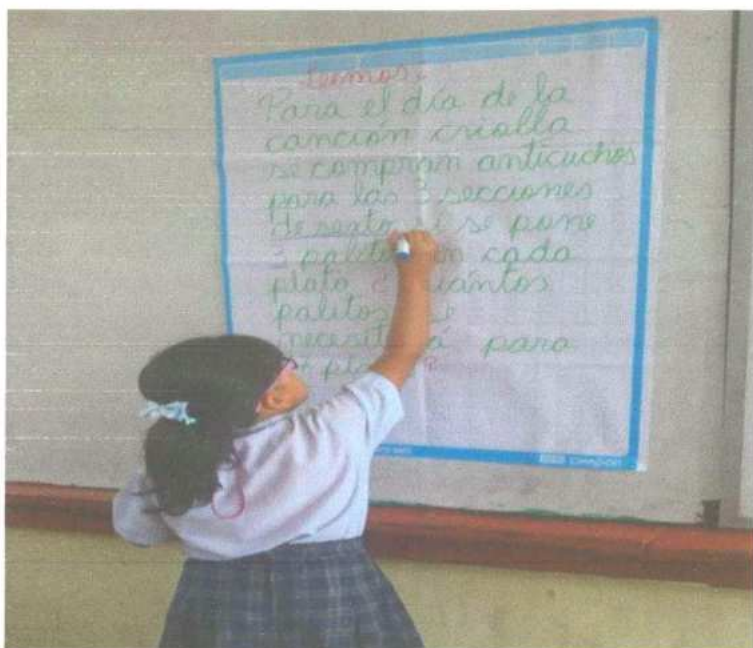 Leemos:
Para el día de la
canción criolla
se compran anticuchos
para las 3 secciones
de sexto, si se pone
3 palitos en cada
plato ¿cuántos
palitos se
necesitará para